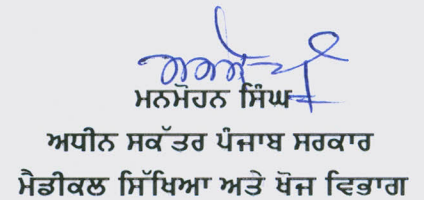 ਮਨਮੋਹਨ ਸਿੰਘ
ਅਧੀਨ ਸਕੱਤਰ ਪੰਜਾਬ ਸਰਕਾਰ
ਮੈਡੀਕਲ ਸਿੱਖਿਆ ਅਤੇ ਖੋਜ ਵਿਭਾਗ